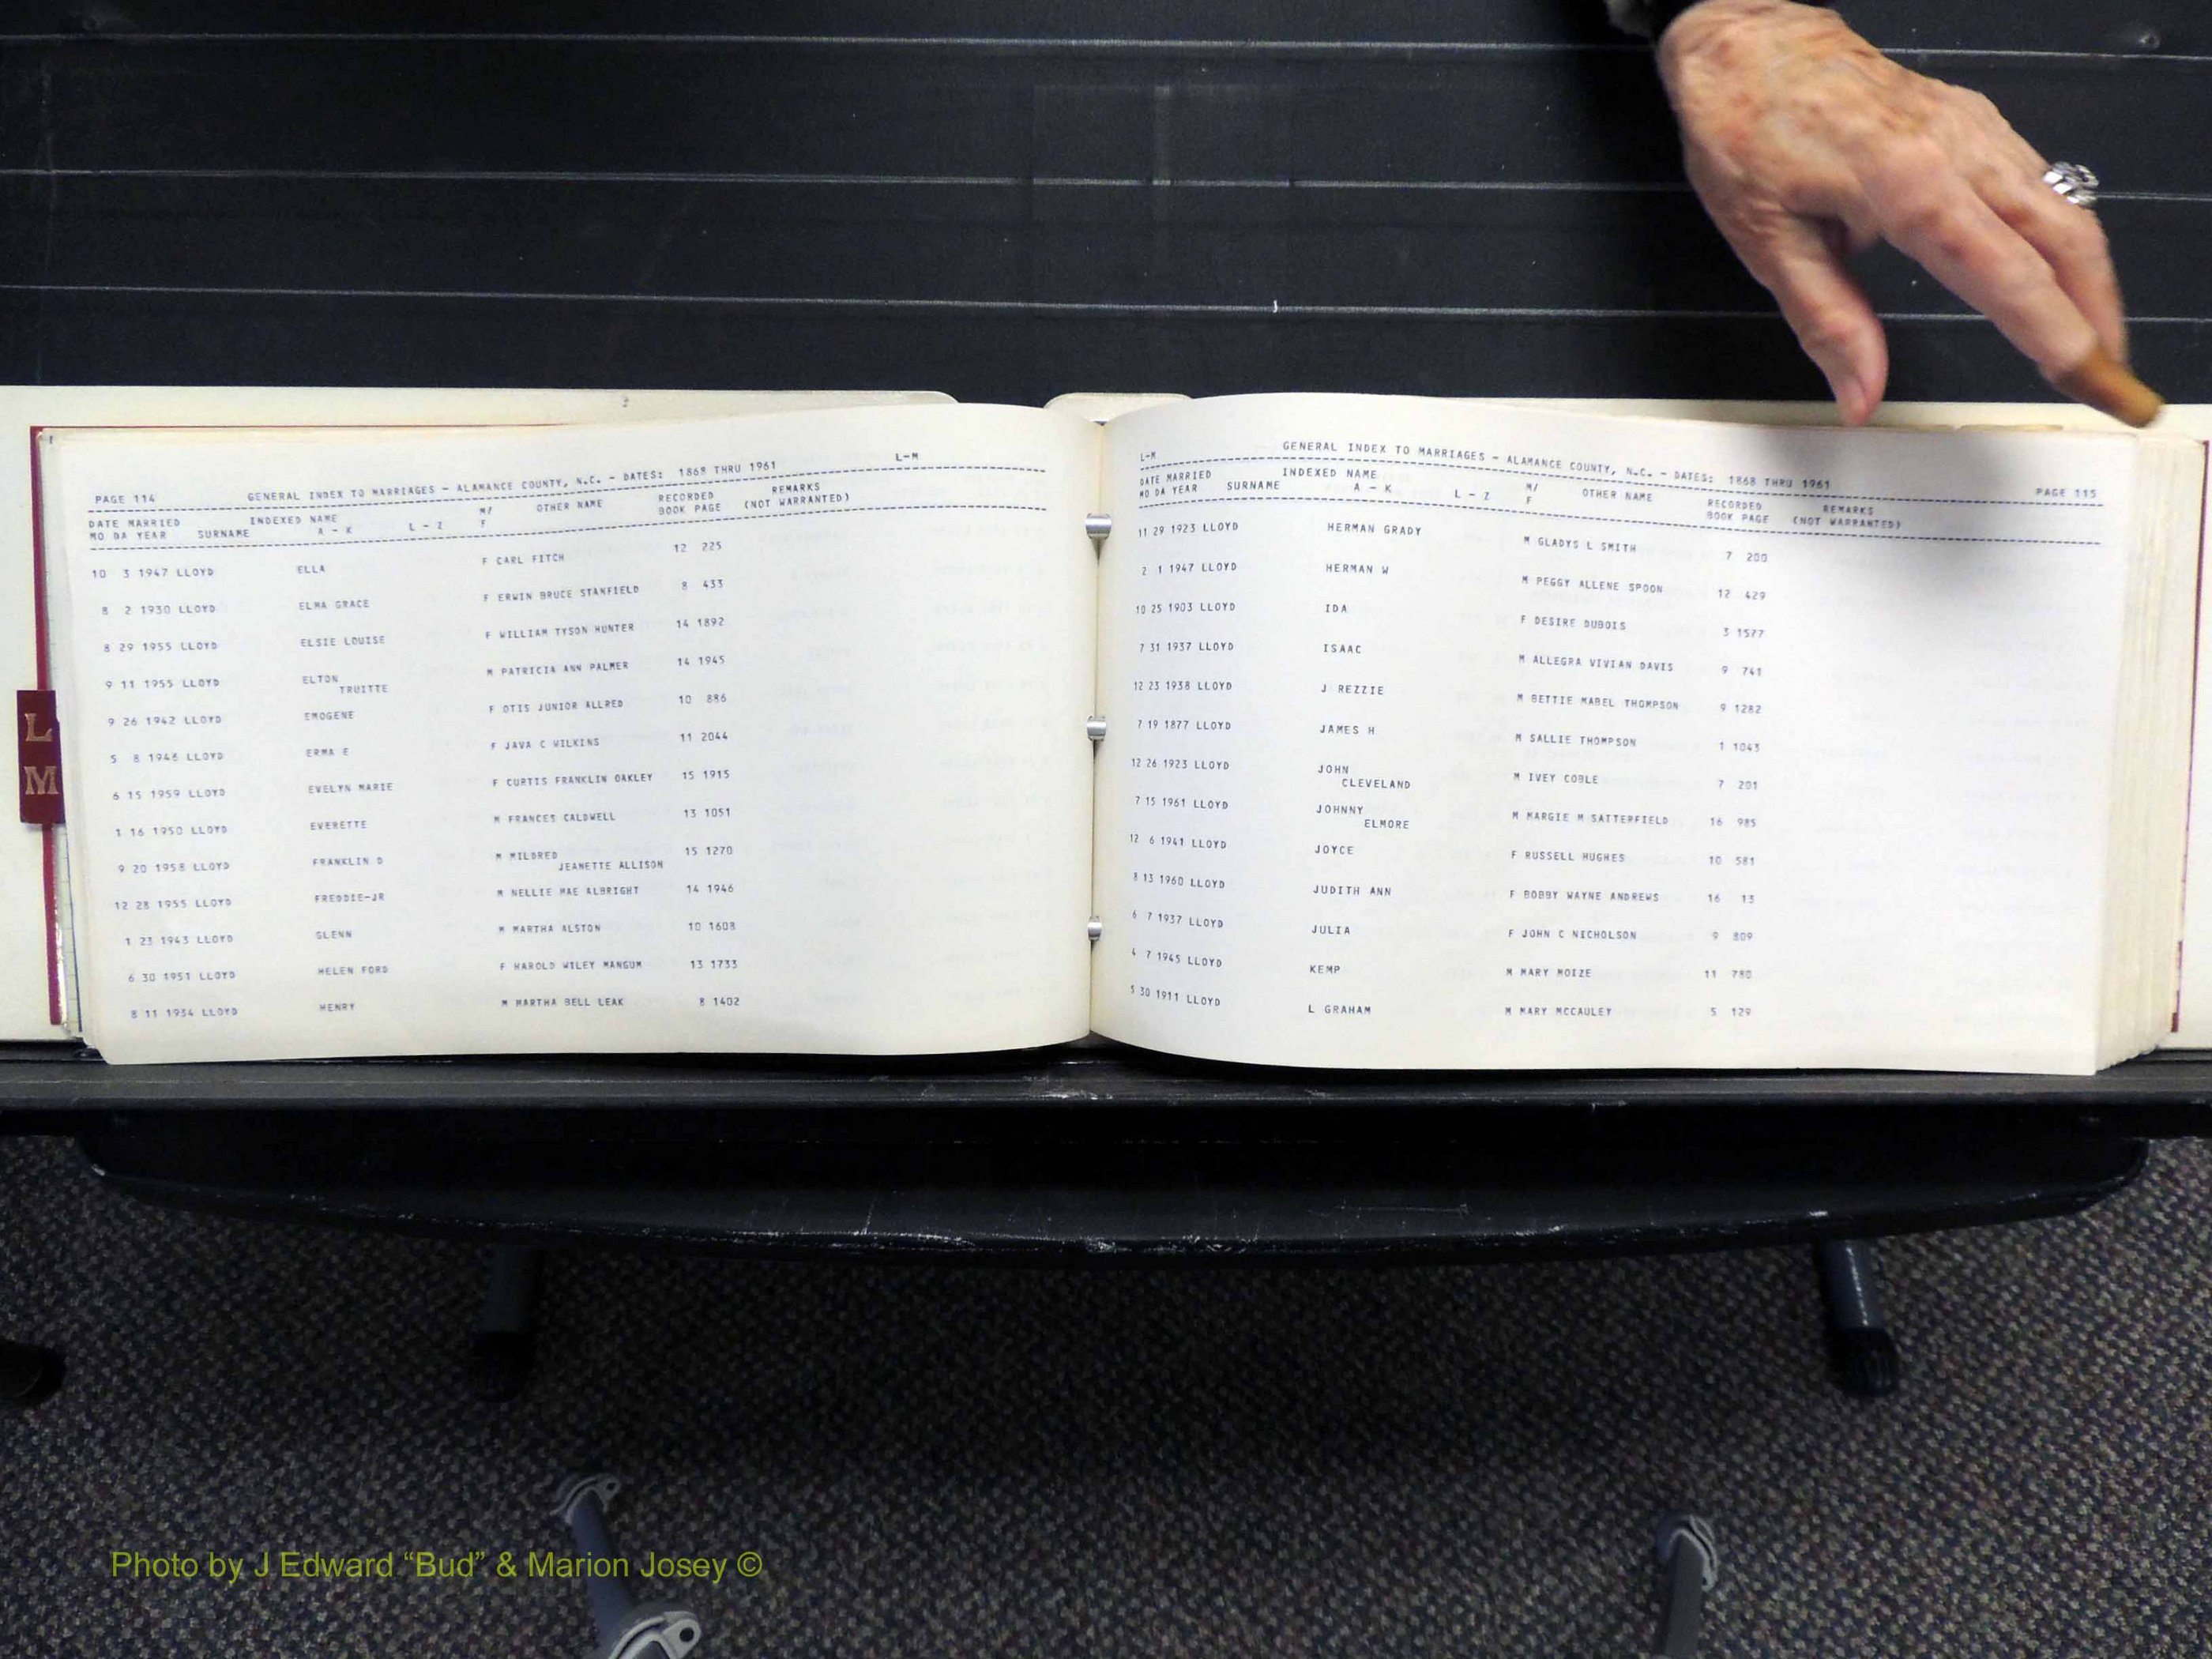 L
M
PAGE 114 GENERAL INDEX TO MARRIAGES - ALAMANCE COUNTY, N.C. - DATES: 1868 THRU 1961 L-M
DATE MARRIED INDEXED NAME M/ OTHER NAME RECORDED REMARKS
MO DA YEAR SURNAME A - K L - Z F BOOK PAGE (NOT WARRANTED)
10 3 1947 LLOYD ELLA F CARL FITCH 12 225
8 2 1930 LLOYD ELMA GRACE F ERWIN BRUCE STANFIELD 8 433
8 29 1955 LLOYD ELSIE LOUISE F WILLIAM TYSON HUNTER 14 1892
9 11 1955 LLOYD ELTON M PATRICIA ANN PALMER 14 1945
TRUITTE
9 26 1942 LLOYD EMOGENE F OTIS JUNIOR ALLRED 10 886
5 8 1946 LLOYD ERMA E F JAVA C WILKINS 11 2044
6 15 1959 LLOYD EVELYN MARIE F CURTIS FRANKLIN OAKLEY 15 1915
1 16 1950 LLOYD EVERETTE M FRANCES CALDWELL 13 1051
9 20 1958 LLOYD FRANKLIN D M MILDRED 15 1270
JEANETTE ALLISON
12 28 1955 LLOYD FREDDIE-JR M NELLIE MAE ALBRIGHT 14 1946
1 23 1943 LLOYD GLENN M MARTHA ALSTON 10 1608
6 30 1951 LLOYD HELEN FORD F HAROLD WILEY MANGUM 13 1733
8 11 1934 LLOYD HENRY M MARTHA BELL LEAK 8 1402
L-M GENERAL INDEX TO MARRIAGES - ALAMANCE COUNTY, N.C. - DATES: 1868 THRU 1961 PAGE 115
DATE MARRIED INDEXED NAME M/ OTHER NAME RECORDED REMARKS
MO DA YEAR SURNAME A - K L - Z F BOOK PAGE (NOT WARRANTED)
11 29 1923 LLOYD HERMAN GRADY M GLADYS L SMITH 7 200
2 1 1947 LLOYD HERMAN W M PEGGY ALLENE SPOON 12 429
10 25 1903 LLOYD IDA F DESIRE DUBOIS 3 1577
7 31 1937 LLOYD ISAAC M ALLEGRA VIVIAN DAVIS 9 741
12 23 1938 LLOYD J REZZIE M BETTIE MABEL THOMPSON 9 1282
7 19 1877 LLOYD JAMES H M SALLIE THOMPSON 1 1043
12 26 1923 LLOYD JOHN M IVEY COBLE 7 201
CLEVELAND
7 15 1961 LLOYD JOHNNY M MARGIE M SATTERFIELD 16 985
ELMORE
12 6 1941 LLOYD JOYCE F RUSSELL HUGHES 10 581
8 13 1960 LLOYD JUDITH ANN F BOBBY WAYNE ANDREWS 16 13
6 7 1937 LLOYD JULIA F JOHN C NICHOLSON 9 809
4 7 1945 LLOYD KEMP M MARY MOIZE 11 780
5 30 1911 LLOYD L GRAHAM M MARY MCCAULEY 5 129
Photo by J Edward “Bud” & Marion Josey ©